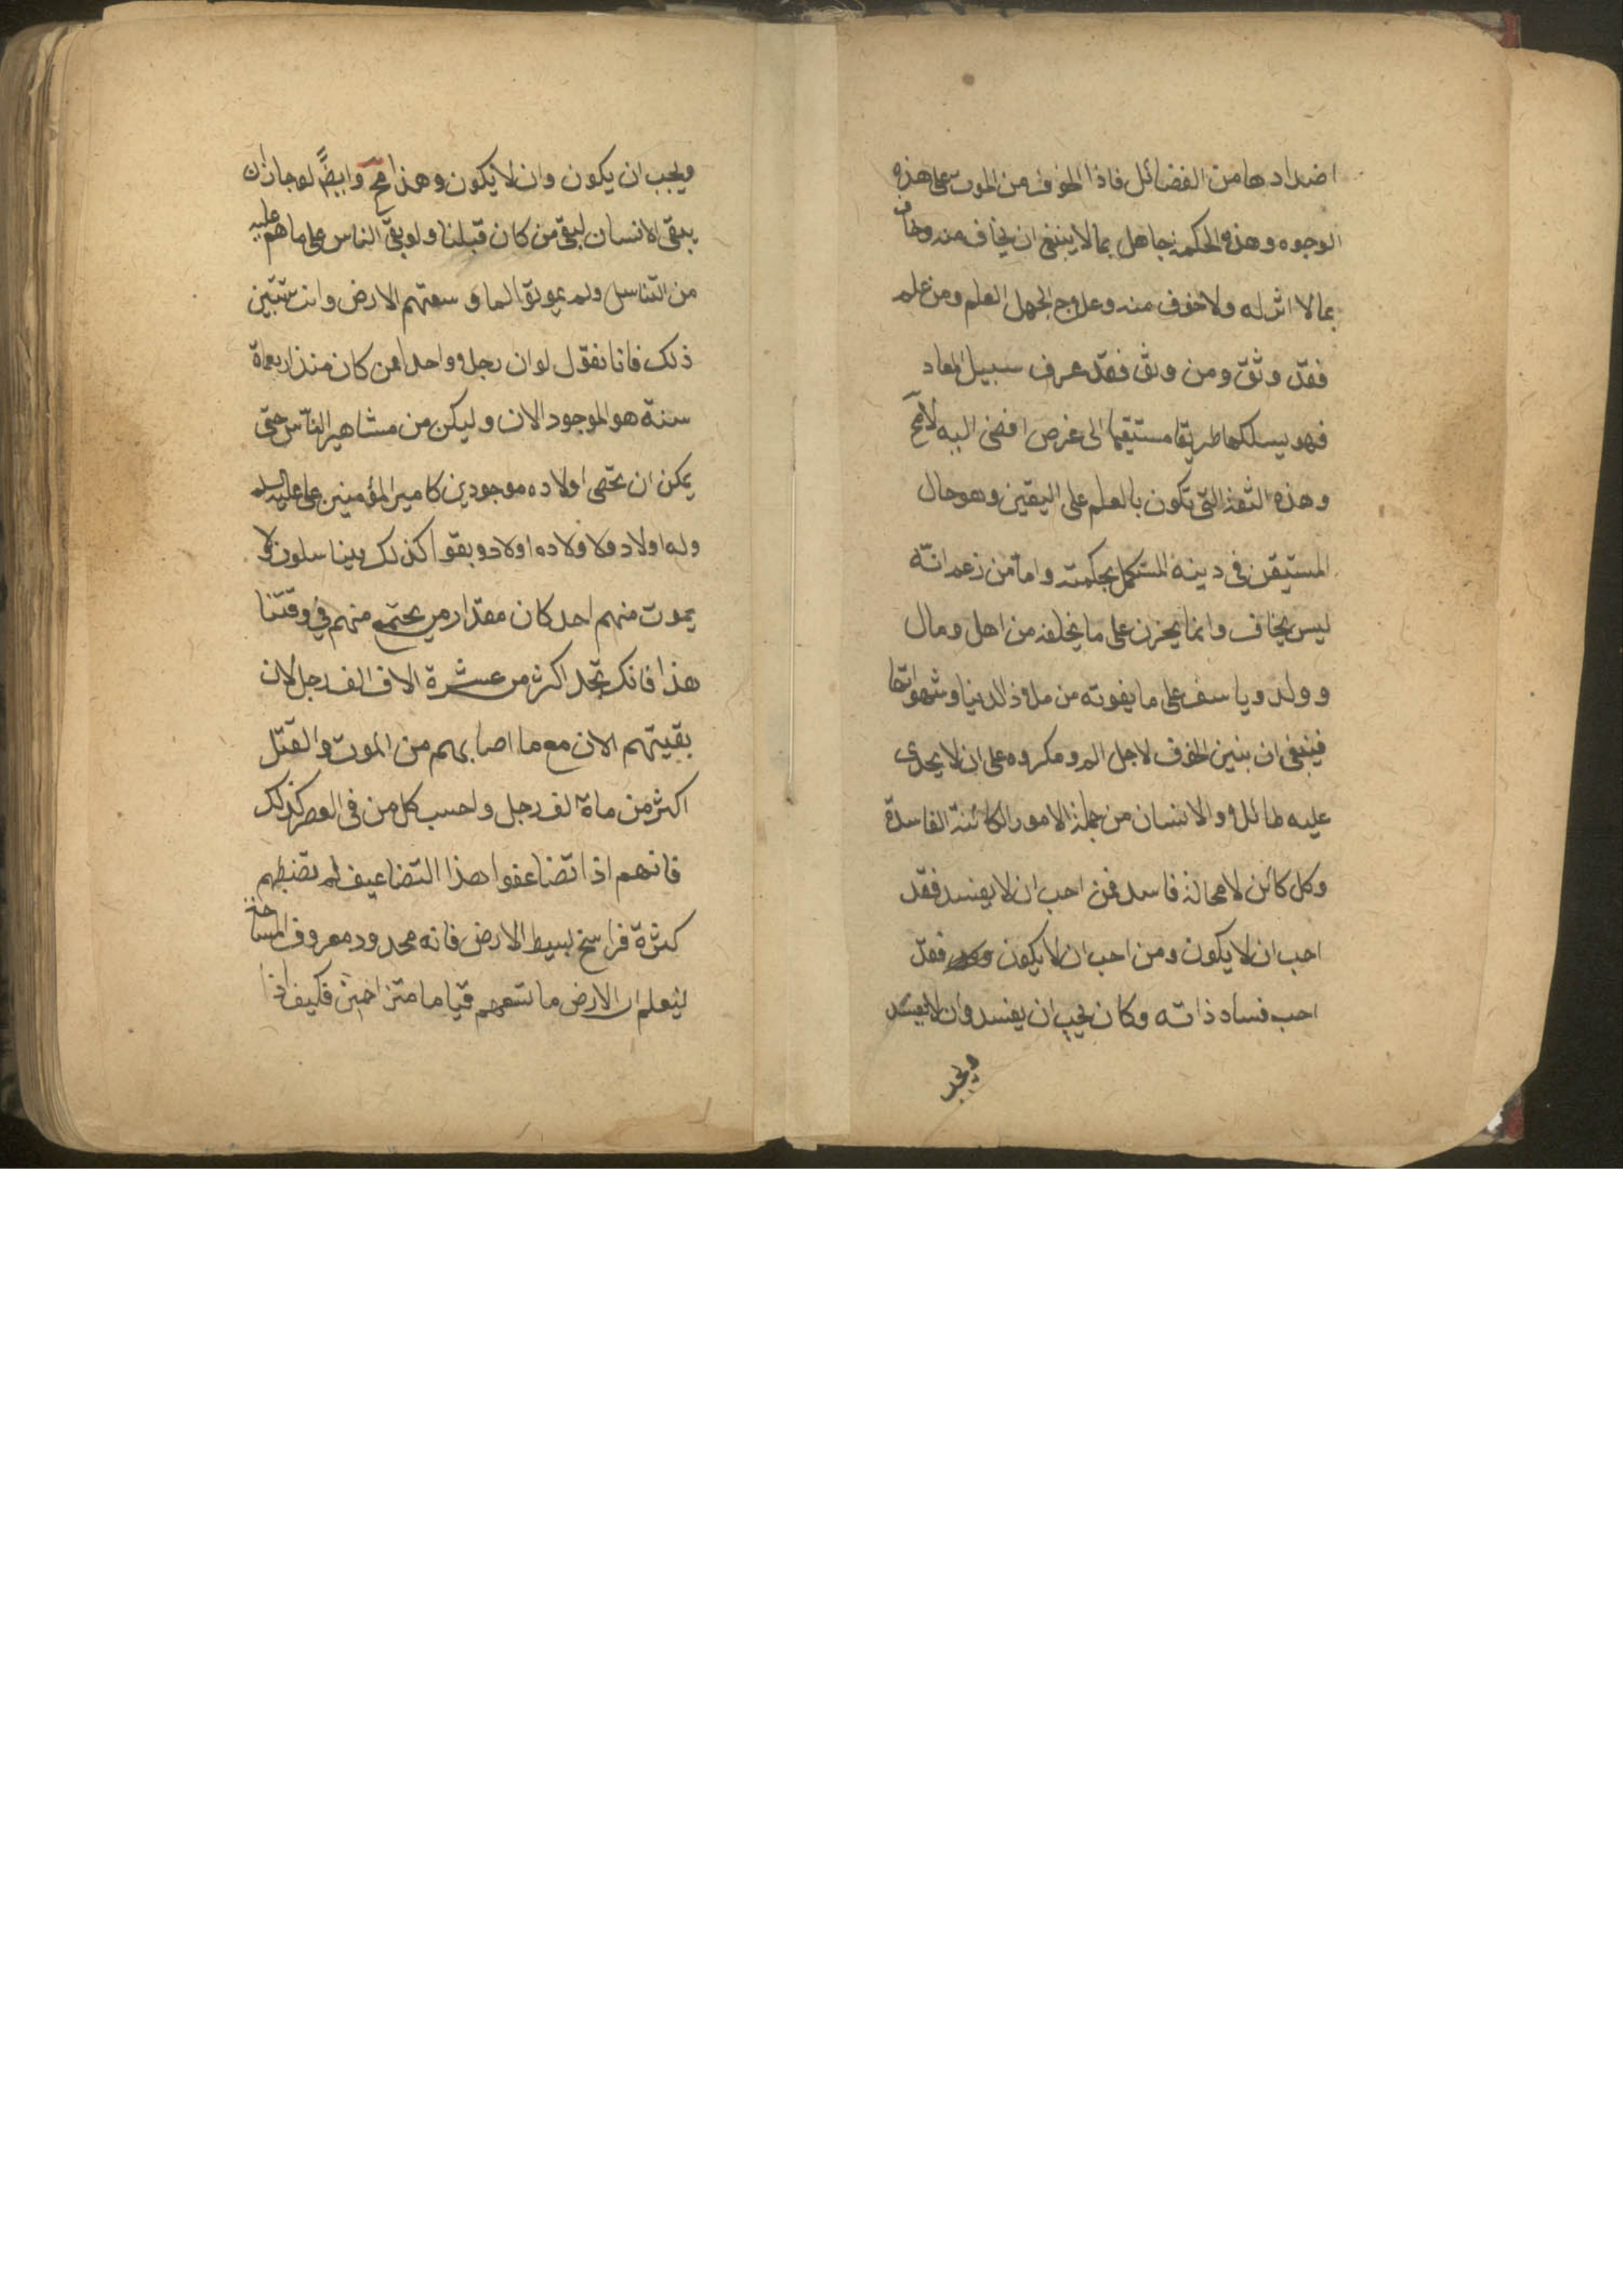 اضدادها من الفضائل فاذا الخوف من الموت على هذه
الوجوه وهذه الحكمة جاهل بما لا ينبغى ان يخاف منه وخاف
بما لا اثر له ولا خوف منه وعلاج الجهل العلم ومن علم
فقد وثق ومن وثق فقد عرف سبيل المعاد
فهو يسلكها طريقا مستقيما الى غرض افضى اليه لامح
وهذه الثقة التى تكون بالعلم على اليقين وهو حال
المستيقن فى دينه المستكمل بحكمته واما من زعم انه
ليس يخاف وانما يحزن على ما يخلفه من اهل ومال
وولد وياسف على ما يفوته من ملاذ الدنيا وشهواتها
فينبغى ان بنين الخوف لاجل الم ومكروه على ان لا يجدى
عليه طائلا والانسان من جملة الامور الكائنة الفاسدة
وكل كائن لا محالة فاسد فمن احب ان لا يفسد فقد
احب ان لا يكون ومن احب ان لا يكون فقد
احب فساد ذاته وكان يحب ان يفسد وان لا يفسد
ويحب
ويحب ان يكون وان لا يكون وهذا مح وايضا لو جاز ان
يبقى الانسان لبقى من كان قبلنا ولو بقى الناس على ما هم عليه
من التناسل ولم يموتوا لما وسعتهم الارض وانت تتبين
ذلك فانا نقول لو ان رجلا واحدا ممن كان منذ اربعماة
سنة هو الموجود الان وليكن من مشاهير الناس حتى
يمكن ان تحصى اولاده موجودين كامير المؤمنين على عليه السلم
وله اولاد ولاولاده اولاد وبقوا كذلك يتناسلون ولا
يموت منهم احد كان مقدار من يجتمع منهم فى وقتنا
هذا فانك تجد اكثر من عشرة الاف الف رجل لان
بقيتهم الان مع ما اصابهم من الموت والقتل
اكثر من ماة الف رجل واحسب كل من فى العصر كذلك
فانهم اذا تضاعفوا هذا التضاعيف لم تضبطهم
كثرة فراسخ بسيط الارض فانه محدود معروف المساحة
ليعلم ان الارض ما تسعهم قياما متزاحمين فكيف اذا